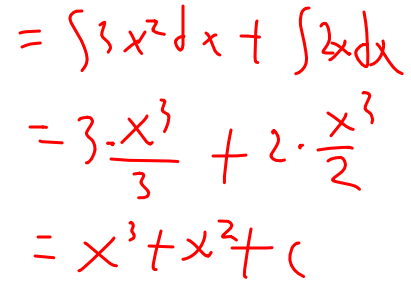 = ∫3x²dx + ∫2xdx
= 3·x³/3 + 2·x³/2
= x³+x²+c